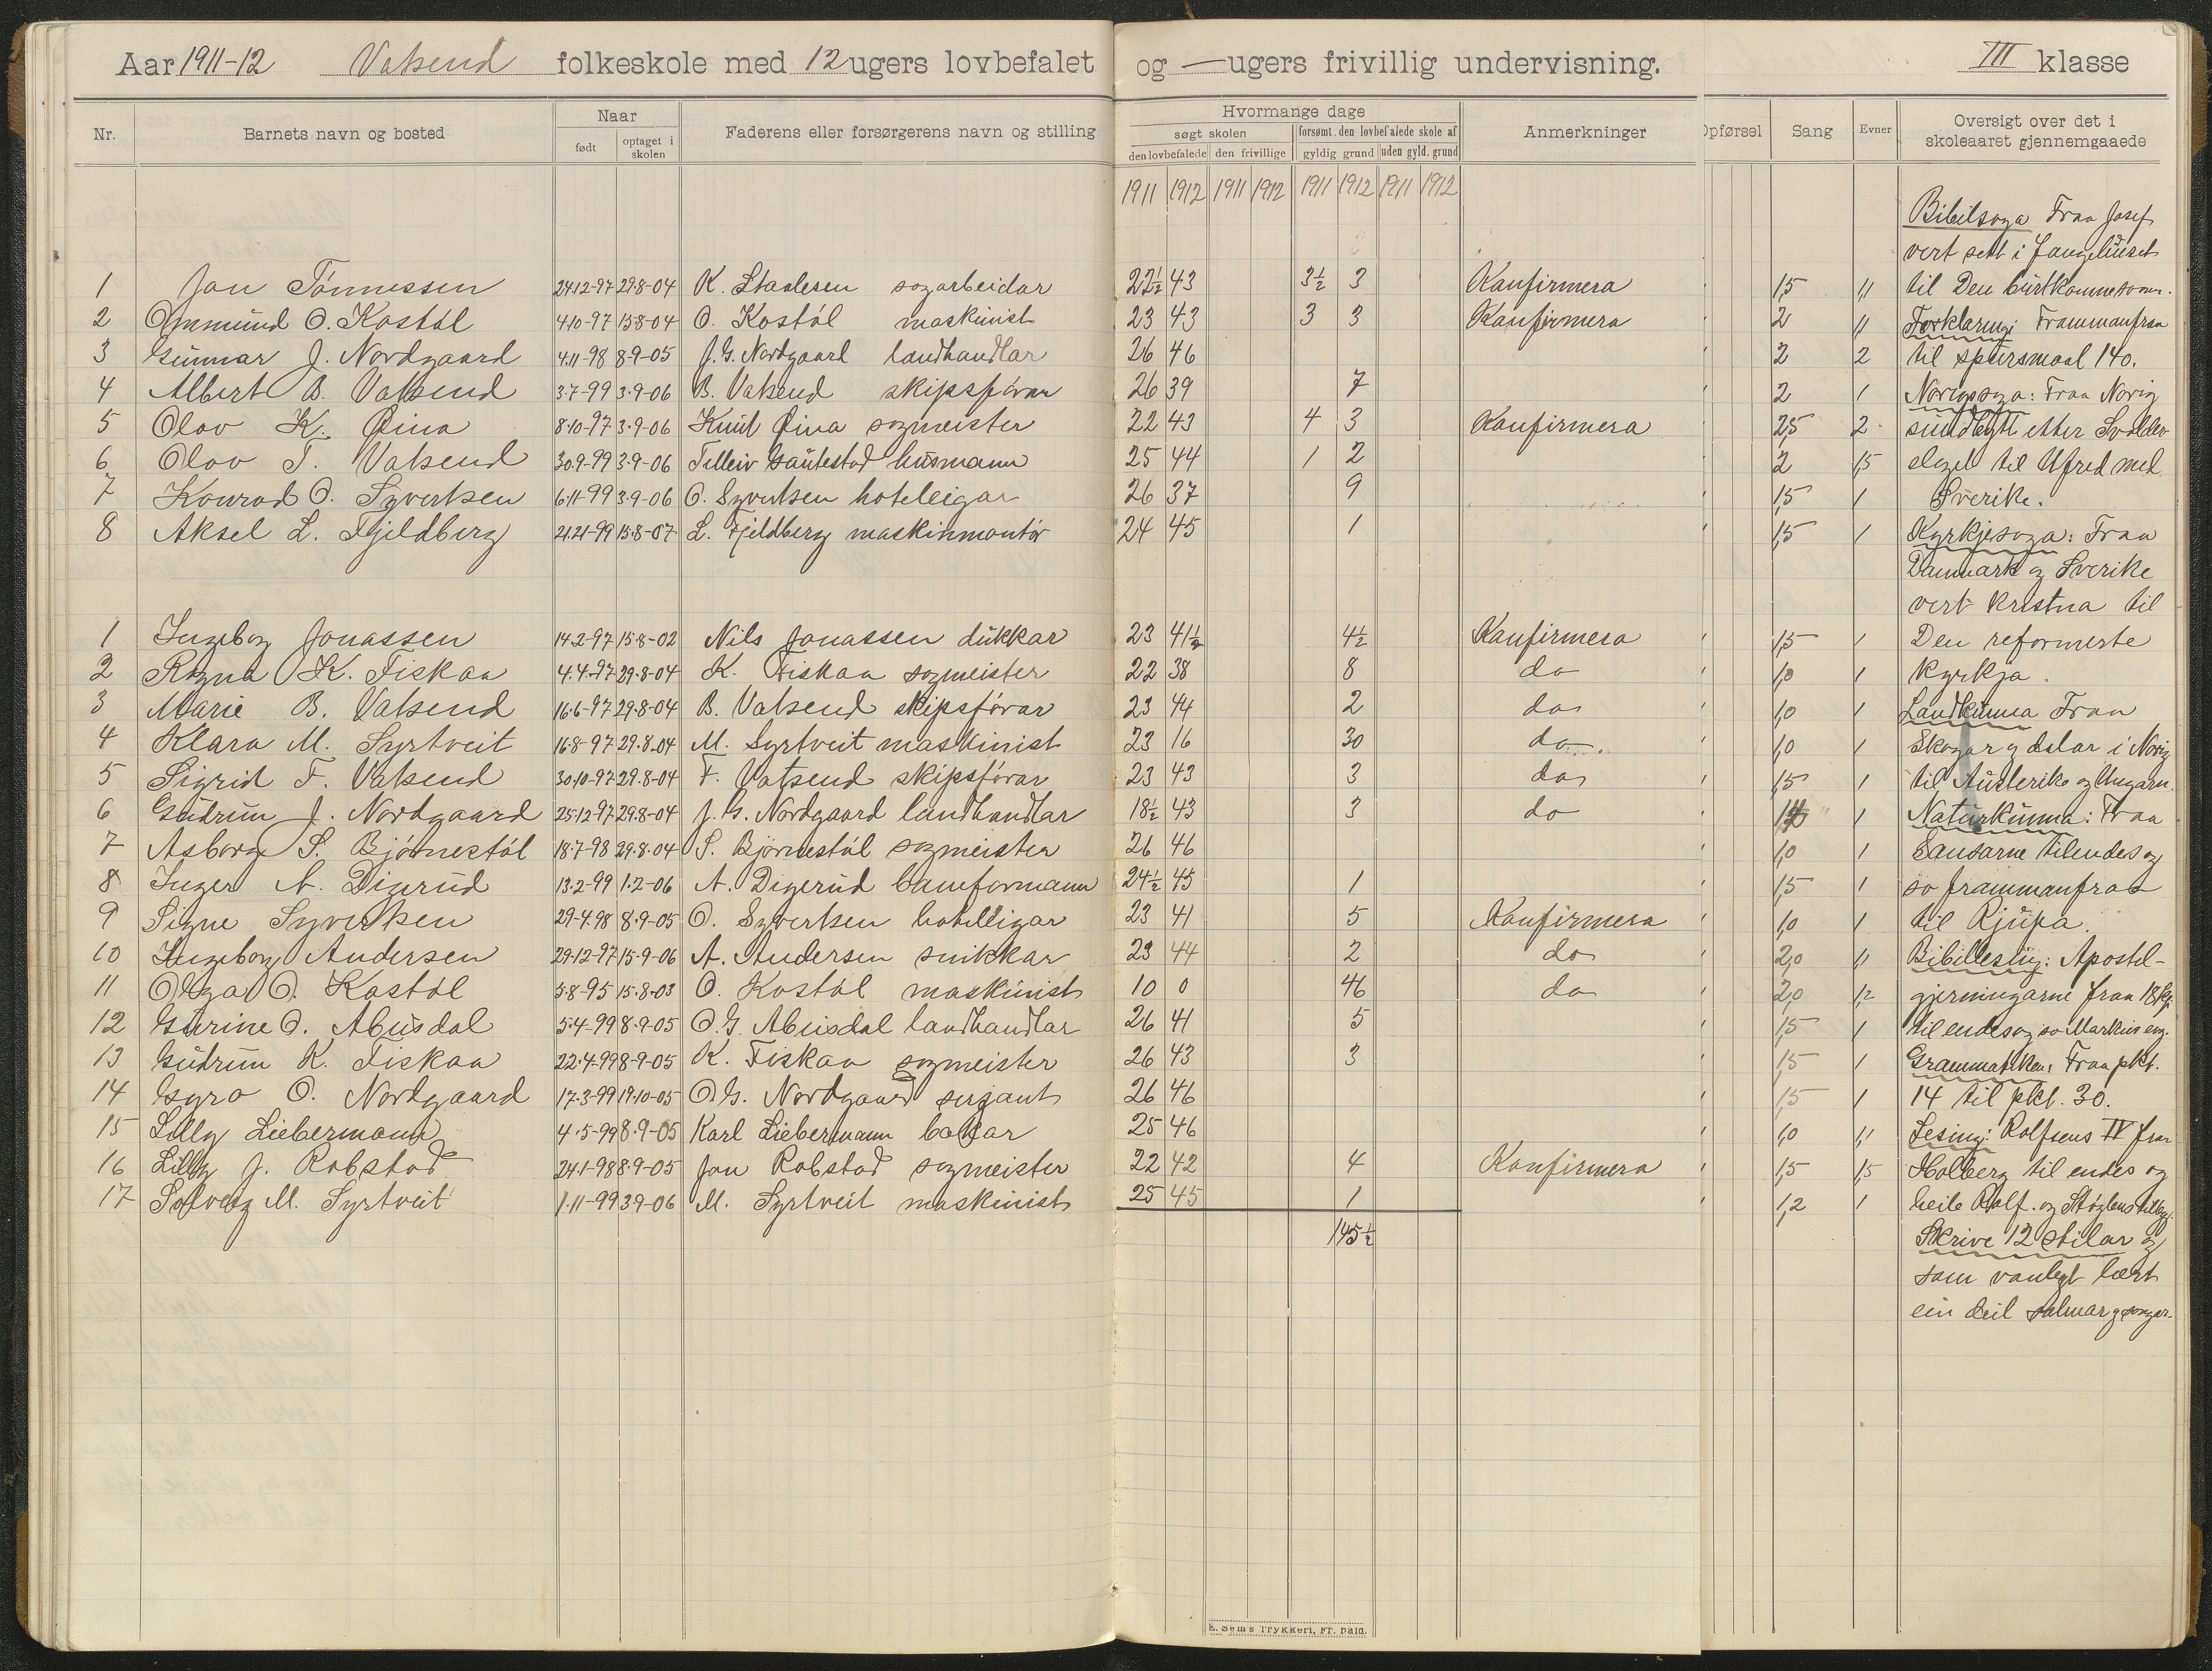 Aar 1911-12 Vatsend folkeskole med 12 ugers lovbefalet og — ugers frivillig undervisning. III klasse
Nr. Barnets navn og bosted Naar født optaget i skolen Faderens eller forsørgerens navn og stilling Hvormange dage søgt skolen den lovbefalede den frivillige forsømt den lovbefalede skole af gyldig grund uden gyld. grund Anmerkninger Opførsel Sang Evner Oversigt over det i skoleaaret gjennemgaaede
1911 1912 1911 1912 1911 1912 1911 1912
Bibilsoga Fraa Josef
vert sett i fangehuset
1 Jon Tønnessen 24.12-97 29.8-04 K. Staalesen sagarbeidar 22½ 43 3½ 3 Konfirmera 1,5 1,1 til Den burtkomne sonen.
2 Omund O. Kostøl 4.10-97 15.8-04 O. Kostøl maskinist 23 43 3 3 Konfirmera 2 1,1 Forklaring: Frammanfraa
3 Gunnar J. Nordgaard 4.11-98 8-9-05 J. G. Nordgaard landhandlar 26 46 2 2 til spursmaal 140.
4 Albert B. Vatsend 3.7-99 3.9-06 B. Vatsend skipsførar 26 39 7 2 1 Norigssoga: Fraa Norig
5 Olav K. Øina 8.10-97 3.9-06 Knut Øina sagmeister 22 43 4 3 Konfirmera 2,5 2 sundbytt etter Svolder
6 Olav T. Vatsend 30.9-99 3.9-06 Telleiv Sautestad husmann 25 44 1 2 2 1,5 slaget til Ufred med
7 Konrad O. Syvertsen 6.11-99 3.9-06 O. Syvertsen hoteleigar 26 37 9 1,5 1 Sverike.
8 Aksel L. Fjeldberg 21.21-99 15.8-07 L. Fjeldberg maskinmontør 24 45 1 1,5 1 Kyrkjesoga: Fraa
Danmark og Sverike
vert kristna til
1 Ingebog Jonassen 14.2-97 15.8-02 Nils Jonassen dukkar 23 41½ 4½ Konfirmera 1,5 1 Den reformerte
2 Ragna K. Fiskaa 4.4-97 29.8-04 K. Fiskaa sagmeister 22 38 8 do 1,0 1 kyrkja.
3 Marie B. Vatsend 16.6-97 29.8-04 B. Vatsend skipsførar 23 44 2 do 1,0 1 Landkunna Fraa
4 Klara M. Syrtveit 16.8-97 29.8-04 M. Syrtveit maskinist 23 16 30 do 1,0 1 Skogar og dalar i Norig
5 Sigrid F. Vatsend 30.10-97 29.8-04 F. Vatsend skipsførar 23 43 3 do 1,5 1 til Austerike og Ungarn.
6 Gudrun J. Nordgaard 25.12-97 29.8-04 J. G. Nordgaard landhandlar 18½ 43 3 do 1 Naturkunna: Fraa
7 Asborg S. Bjørnestøl 18.7-98 29.8.04 S. Bjørnestøl sagmeister 26 46 1,0 1 Sansarne tilendes og
8 Inger A. Digerud 13.2-99 1.2-06 A. Digerud baneformann 24½ 45 1 1,5 1 so frammanfraa
9 Signe Syvertsen 29-4.98 8.9-05 O. Syvertsen hotelleigar 23 41 5 Konfirmera 1,0 1 til Rjupa.
10 Ingeborg Andersen 29.12-97 15-9-06 A. Andersen snikkar 23 44 2 do 2,0 1,1 Bibillesing: Apostel-
11 Olga O. Kostøl 5.8-95 15.8-03 O. Kostøl maskinist 10 0 46 do 2,0 1,2 gjerningarne fraa 18 kp.
12 Gurine O. Abusdal 5.4-99 8.9-05 O. G. Abusdal landhandlar 26 41 5 1,5 1 til endes og so Markus ev.
13 Gudrun K. Fiskaa 22.4-99 8-9-05 K. Fiskaa sagmeister 26 43 3 1,5 1 Grammatikken: Fraa pkt.
14 Gyro O. Nordgaard 17.3-99 19.10-05 O. G. Nordgaard sersjant 26 46 1,5 1 14 til pkt. 30.
15 Lilly Liebermann 4.5-99 8.9-05 Karl Liebermann bakar 25 46 1,0 1,1 Lesing: Rolfsens IV fraa
16 Lilly J. Robstad 24.1-98 8.9-05 Jon Robstad sagmeister 22 42 4 Konfirmera 1,5 1,5 Holberg til endes og
17 Solveig M. Syrtveit 1.11-99 3.9-06 M. Syrtveit maskinist 25 45 1 1,2 1 heile Rolf. og Støylens tillegg.
145½ Skrive 12 stilar og
som vanlegt lært
ein deil salmar og songar.
E. Sem's Trykkeri, Fr. hald.